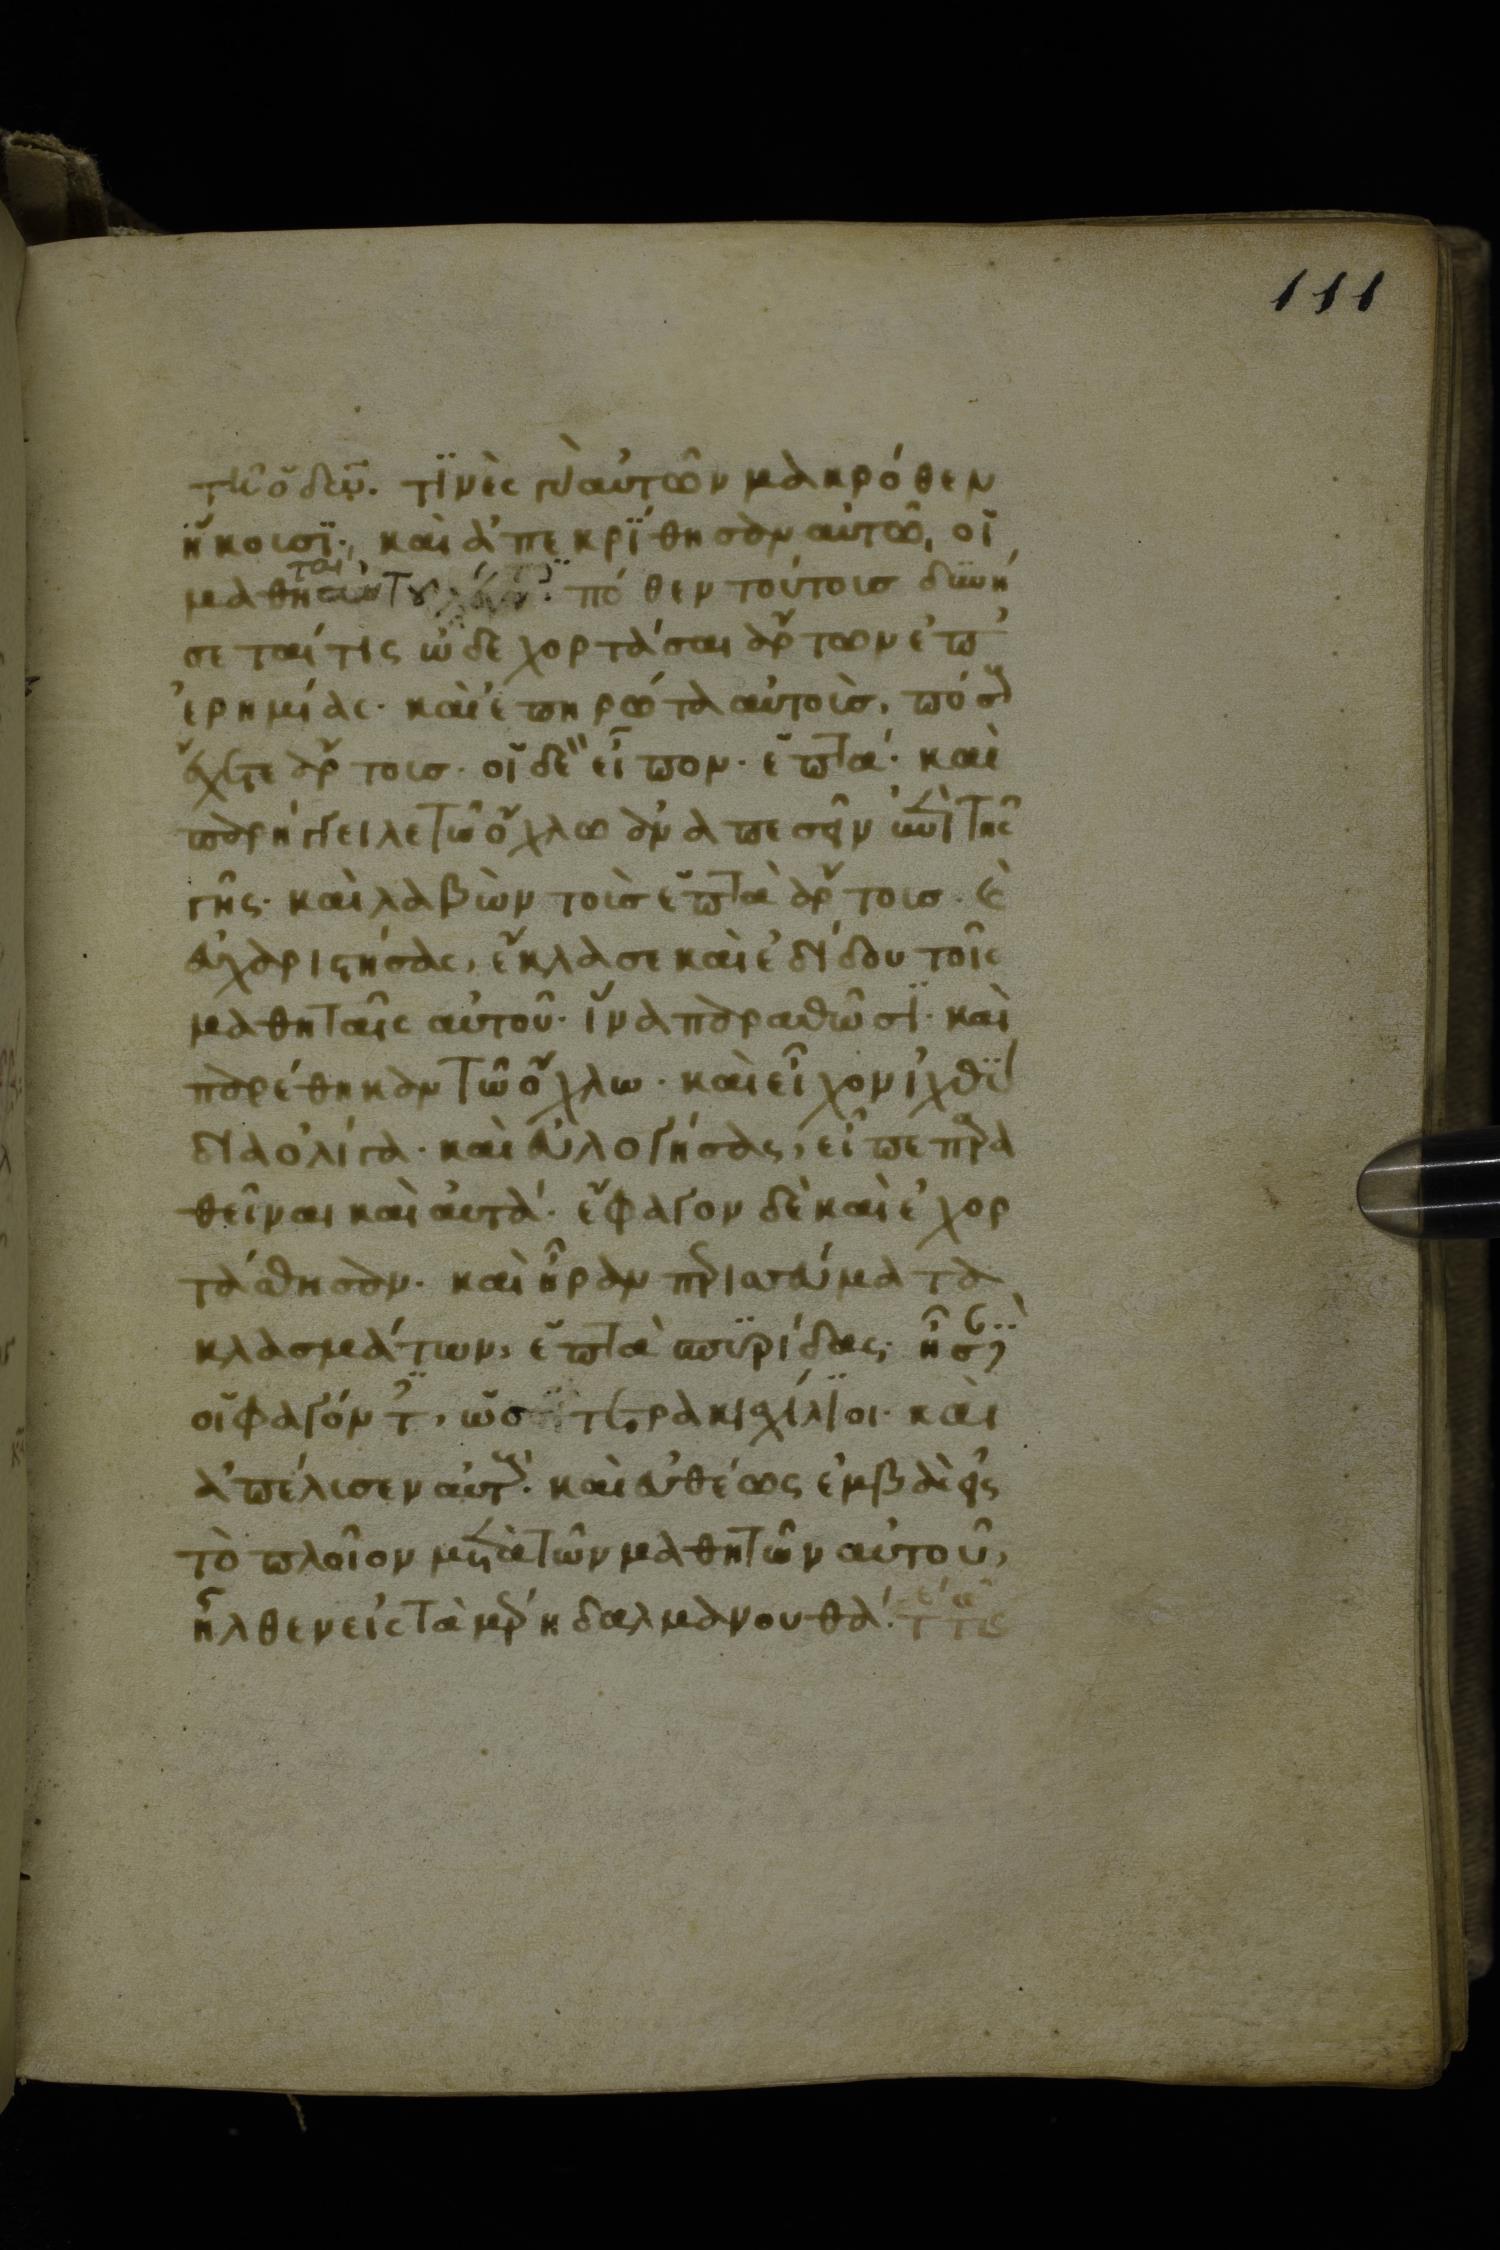 111
τῆ ὁδῶ. τϊνὲς γὰρ αὐτῶν μακρόθεν
ἥκουσϊ. καὶ ἀπεκρΐθησαν αὐτῶ, οἱ
μαθηταὶ αὐτοῦ πόθεν τούτους δϋνή
σεταί τις ὧδε χορτάσαι ἄρτων ἐπ'
ἐρημίας. καὶ ἐπηρώτα αὐτοὺσ. πόσους
ἔχετε ἄρτους. οἱ δὲ εἶπον. ἑπτά. καὶ
παρήγγειλε τῶ ὄχλω ἀναπεσεῖν ἐπὶ τῆς
γῆς. καὶ λαβὼν τοὺσ ἑπτὰ ἄρτους. καὶ
εὐχαριστήσας, ἔκλασε καὶ ἐδίδου τοῖς
μαθηταῖς αὐτοῦ. ἵνα παραθῶσϊ. καὶ
παρέθηκαν τῶ ὄχλω. καὶ εἶχον ἰχθϋ
δια ὀλίγα. καὶ εὐλογήσας, εἶπε παρα
θεῖναι καὶ αὐτά. ἔφαγον δὲ καὶ ἐχορ
τάσθησαν. καὶ ἦραν περισσεύματα
κλασμάτων, ἑπτὰ σπϋρίδας. ἦσαν δὲ
οἱ φαγόντες, ὡσ τετρακισχίλϊοι. καὶ
ἀπέλυσεν αὐτούς. καὶ εὐθέως ἐμβὰς εἰς
τὸ πλοῖον μετὰ τῶν μαθητῶν αὐτοῦ,
ἦλθεν εἰς τὰ μέρη δαλμανουθά.